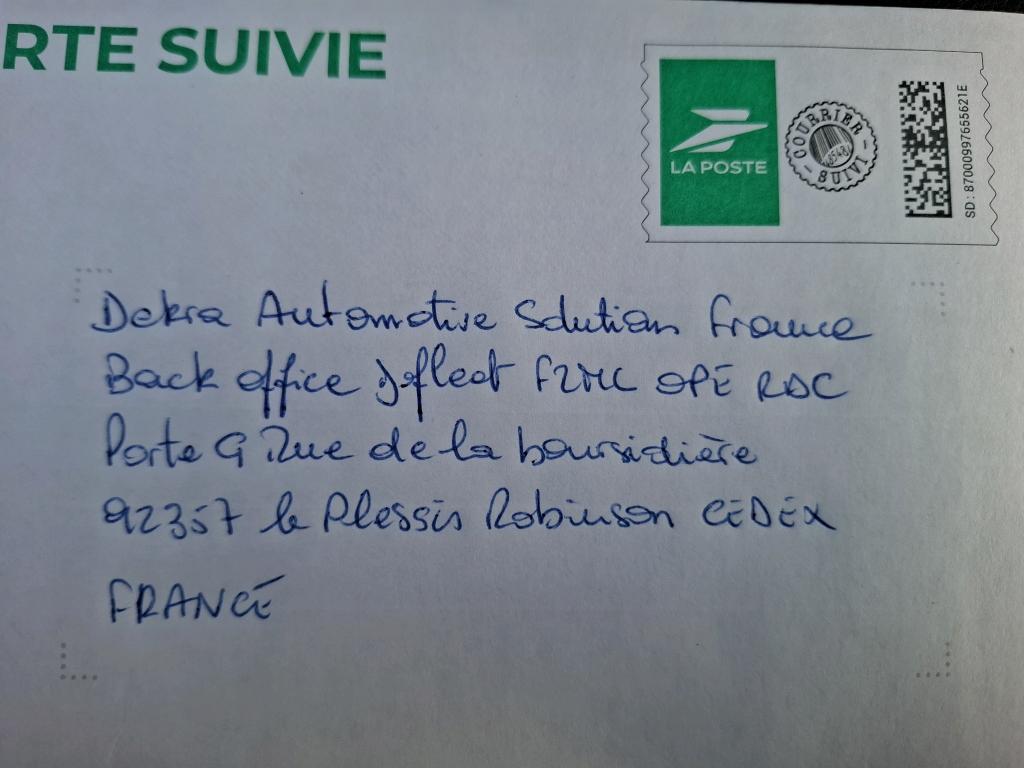 RTE SUIVIE
LA POSTE
COURRIER
SUIVI
SD : 87000997655621E
Dekra Automotive Solution France
Back office Jofleet F2ML OPE RDC
Porte G Rue de la boursidière
92357 le Plessis Robinson CEDEX
FRANCE